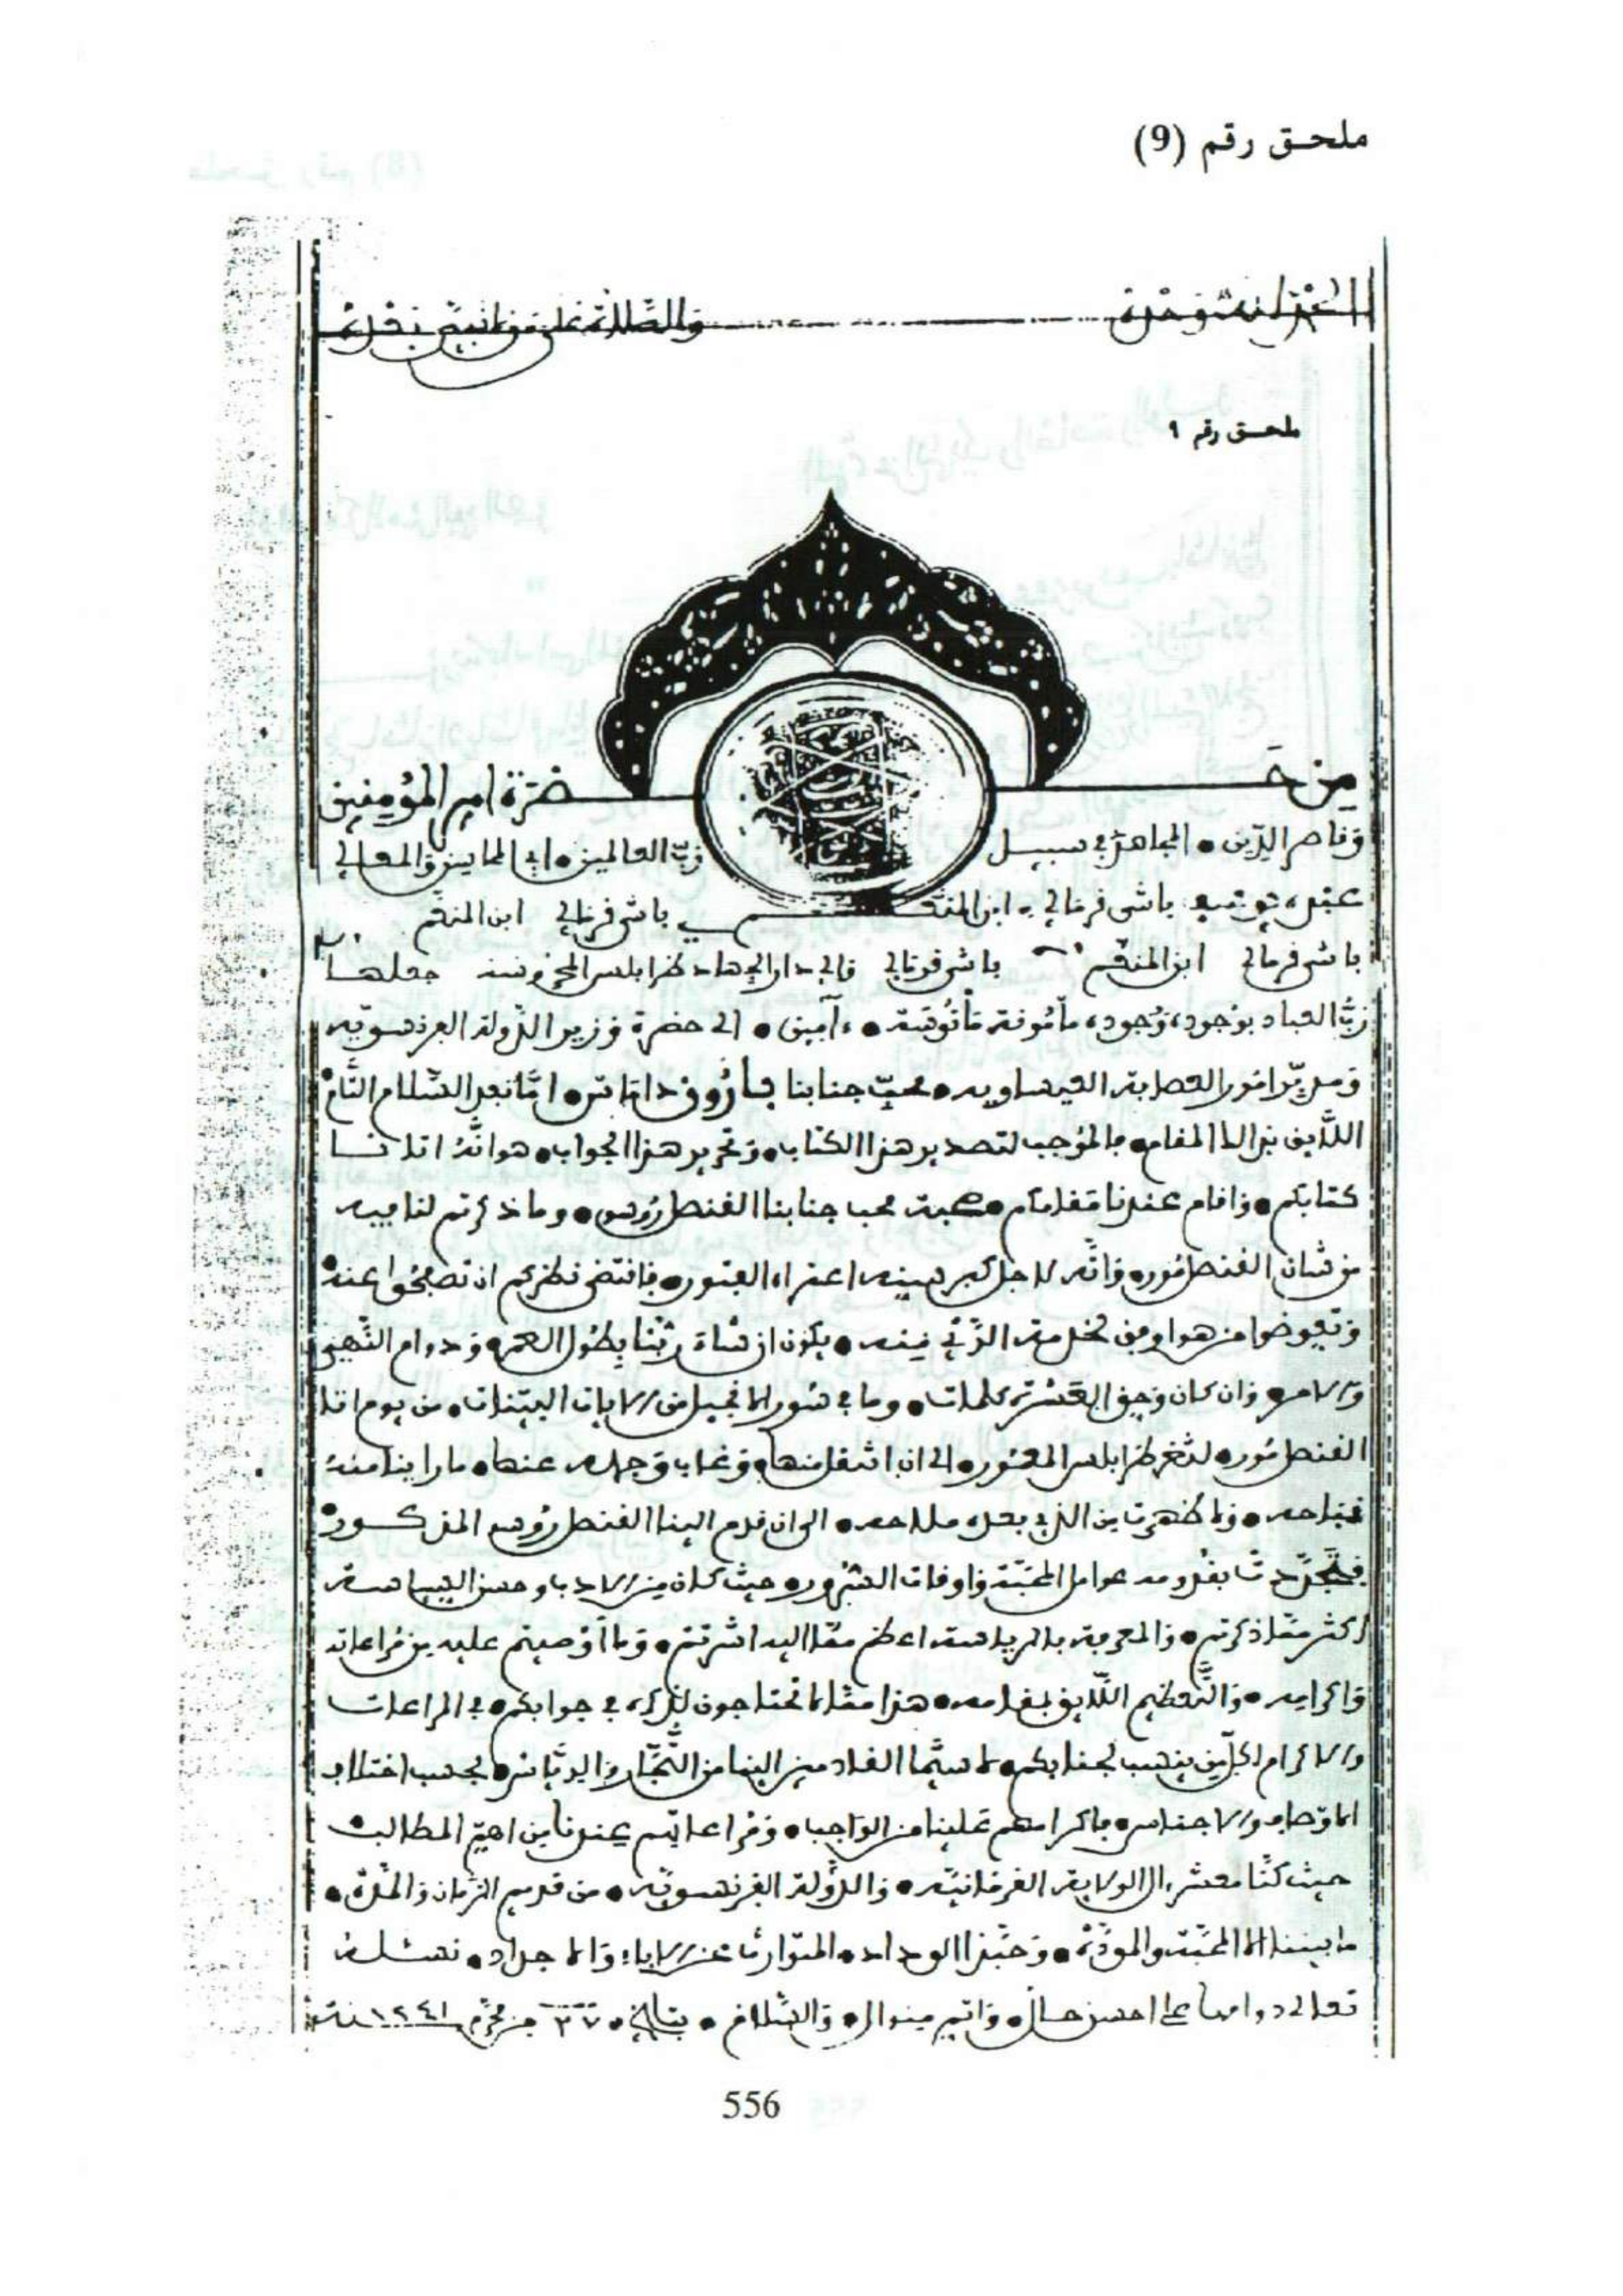 ملحق رقم (9)
الحمد لله وحده والصلاة على من لا نبي بعده
ملحق رقم ٩
من حضرة امير المؤمنين
وناصر الدين • المجاهد في سبيل رب العالمين • ابي المحاسن والمعالي
عبده يوسف باشى قرمالي ابن المنعم باشى قرمالي ابن المنعم
باشى قرمالي ابن المنعم باشى قرمالي والي دار الجهاد طرابلس المحروسة جعلها
رب العباد بوجوده وجوده مأمونة مأنوسة • ءامين • الى حضرة وزير الدولة الفرنسوية
ومدبر امور العصابة العيساوية • محب جنابنا بارون داماس • اما بعد السلام التام
اللايق بذالك المقام • فالموجب لتصدير هذا الكتاب • وتحرير هذا الجواب • هو انه اتانا
كتابكم • واقام عندنا مقامكم • صحبة محب جنابنا القنصل روسو • وما ذكرتم لنا فيه
من شان القنصل مور • وانه لاجل كبر سنه اعتراه الفتور • فاقتضى نظركم ان تصفحوا عنه
وتعوضوا من هو اوفق لخدمة الزي منه • يكون ان شاء ربنا بطول العمر • ودوام النهي
والامر • وان كان وحق العشرة كلمات • وما في سور الانجيل من الايات البينات • من يوم اتا
القنصل مور • لثغر طرابلس المعمور • الى ان انتقل منها • وغاب وجهه عنها • ما راينا منه
قباحه • ولا ظهرت من الذي بعده ملاحه • الى ان قدم الينا القنصل روسو المذكور
فتجددت بقدومه عوامل المحبة واوقات السرور • حيث كان من الادب وحسن السياسة
اكثر مما ذكرتم • والمعرفة بالرياسة اعظم مما اليه اشرتم • وما اوصيتم عليه من مراعاته
واكرامه • والتعظيم اللايق بمقامه • هذا مما لا تحتاجون لذكره في جوابكم • في المراعات
والاكرام لكل من ينسب لجنابكم • لا سيما القادمين الينا من التجار والرياس • بحسب اختلاف
الاوصاف والاجناس • فاكرامهم علينا من الواجب • ومراعاتهم عندنا من اهم المطالب •
حيث كنا معشر الولاية القرمانية • والدولة الفرنسوية • من قديم الزمان والمدة •
ما بيننا الا المحبة والمودة • وحبذا الوداد • المتوارث عن الاباء والاجداد • نسئله
تعالى دوامها على احسن حال • واتم منوال • والسلام • بتاريخ • ٢٧ من محرم ١٢٤١ سنة
556